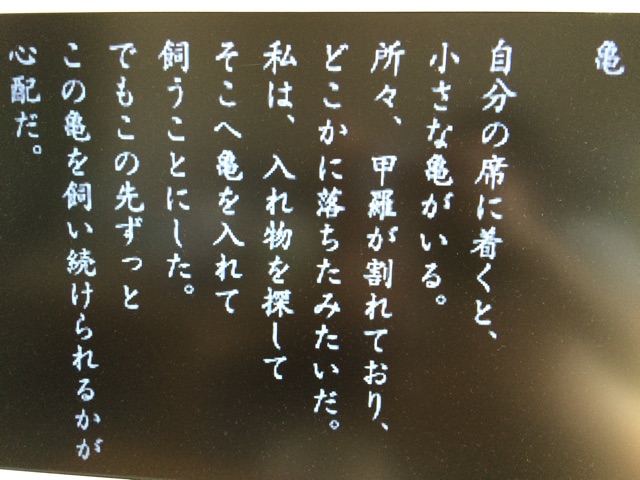 亀
自分の席に着くと、
小さな亀がいる。
所々、甲羅が割れており、
どこかに落ちたみたいだ。
私は、入れ物を探して
そこへ亀を入れて
飼うことにした。
でもこの先ずっと
この亀を飼い続けられるかが
心配だ。